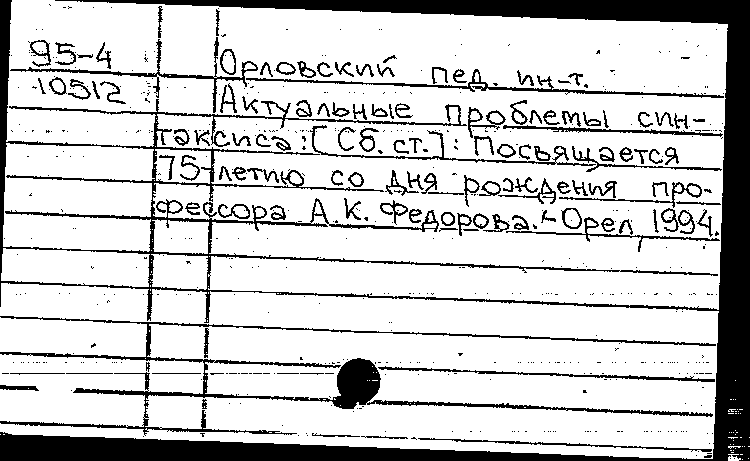 95-4
10512
Орловский пед. ин-т.
Актуальные проблемы син-
таксиса: [Сб. ст.]: Посвящается
75-летию со дня рождения про-
фессора А. К. Федорова. - Орел, 1994.